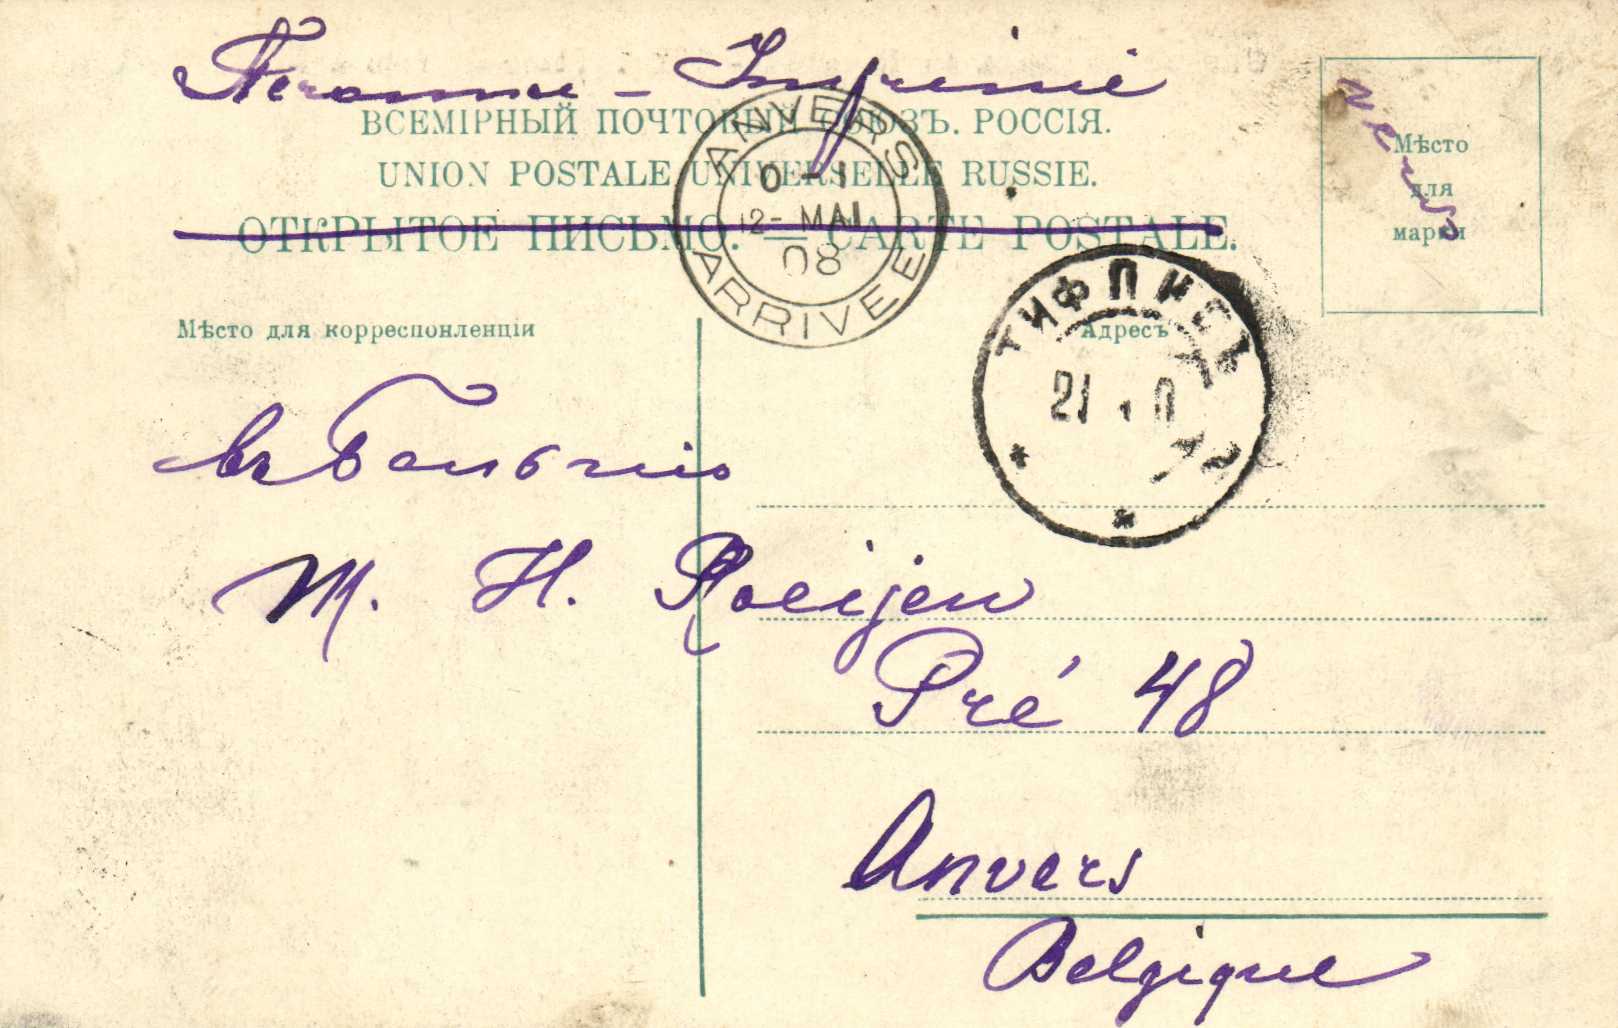 Imprimé
ВСЕМІРНЫЙ ПОЧТОВЫЙ СОЮЗЪ. РОССІЯ.
UNION POSTALE UNIVERSELLE RUSSIE.
ОТКРЫТОЕ ПИСЬМО. — CARTE POSTALE.
Мѣсто
для
марки
verso
ANVERS
0-1
12- MAI
08
ARRIVEE
Мѣсто для корреспонленціи
Адресъ
ТИФЛИСЪ
21
въ Бельгию
M. H. Roeijen
Pré 48
Anvers
Belgique